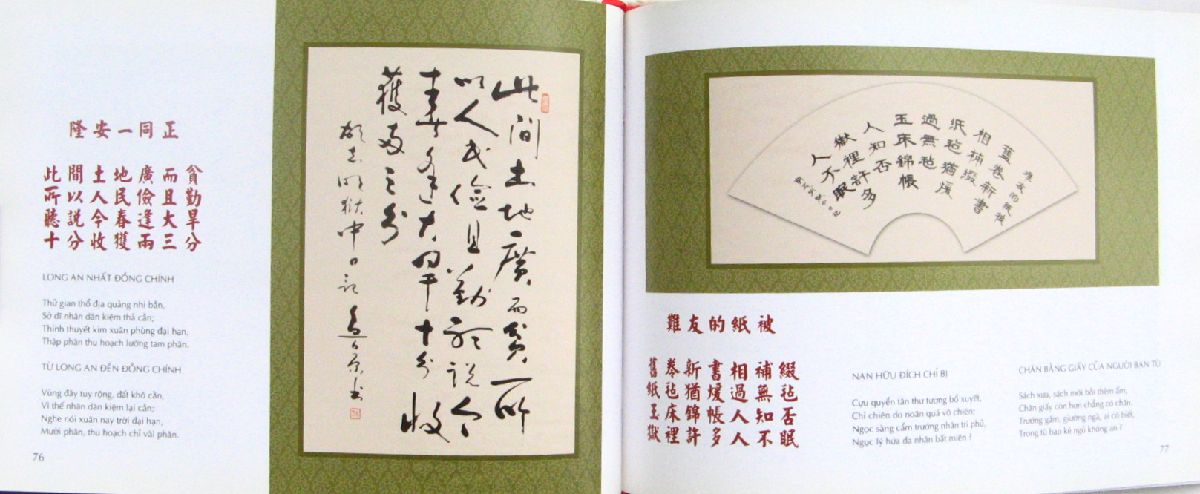 隆安一同正
此間土地廣而貧
所以人民儉且勤
聽說今春逢大旱
十分收獲兩三分
LONG AN NHẤT ĐỒNG CHÍNH
Thử gian thổ địa quảng nhi bần,
Sở dĩ nhân dân kiệm thả cần;
Thính thuyết kim xuân phùng đại hạn,
Thập phân thu hoạch lưỡng tam phân.
TỪ LONG AN ĐẾN ĐỒNG CHÍNH
Vùng đây tuy rộng, đất khô cằn,
Vì thế nhân dân kiệm lại cần;
Nghe nói xuân nay trời đại hạn,
Mười phần, thu hoạch chỉ vài phân.
76
此間土地廣而貧所
以人民儉且勤聽說今
春逢大旱十分收
獲兩三分
胡志明獄中日記
難友的紙被
舊卷新書
相補綴
紙毯猶煖
過無毯
玉床錦帳
人知否
獄裡許多
人不眠
難友的紙被
舊卷新書相補綴
紙毯猶煖過無毯
玉床錦帳人知否
獄裡許多人不眠
NẠN HỮU ĐÍCH CHỈ BỊ
Cựu quyển tân thư tương bổ xuyết,
Chỉ chiên do noãn quá vô chiên;
Ngọc sàng cẩm trướng nhân tri phủ,
Ngục lý hứa đa nhân bất miên !
CHĂN BẰNG GIẤY CỦA NGƯỜI BẠN TÙ
Sách xưa, sách mới bồi thêm ấm,
Chăn giấy còn hơn chẳng có chăn,
Trướng gấm, giường ngà, ai có biết,
Trong tù bao kẻ ngủ không an !
77